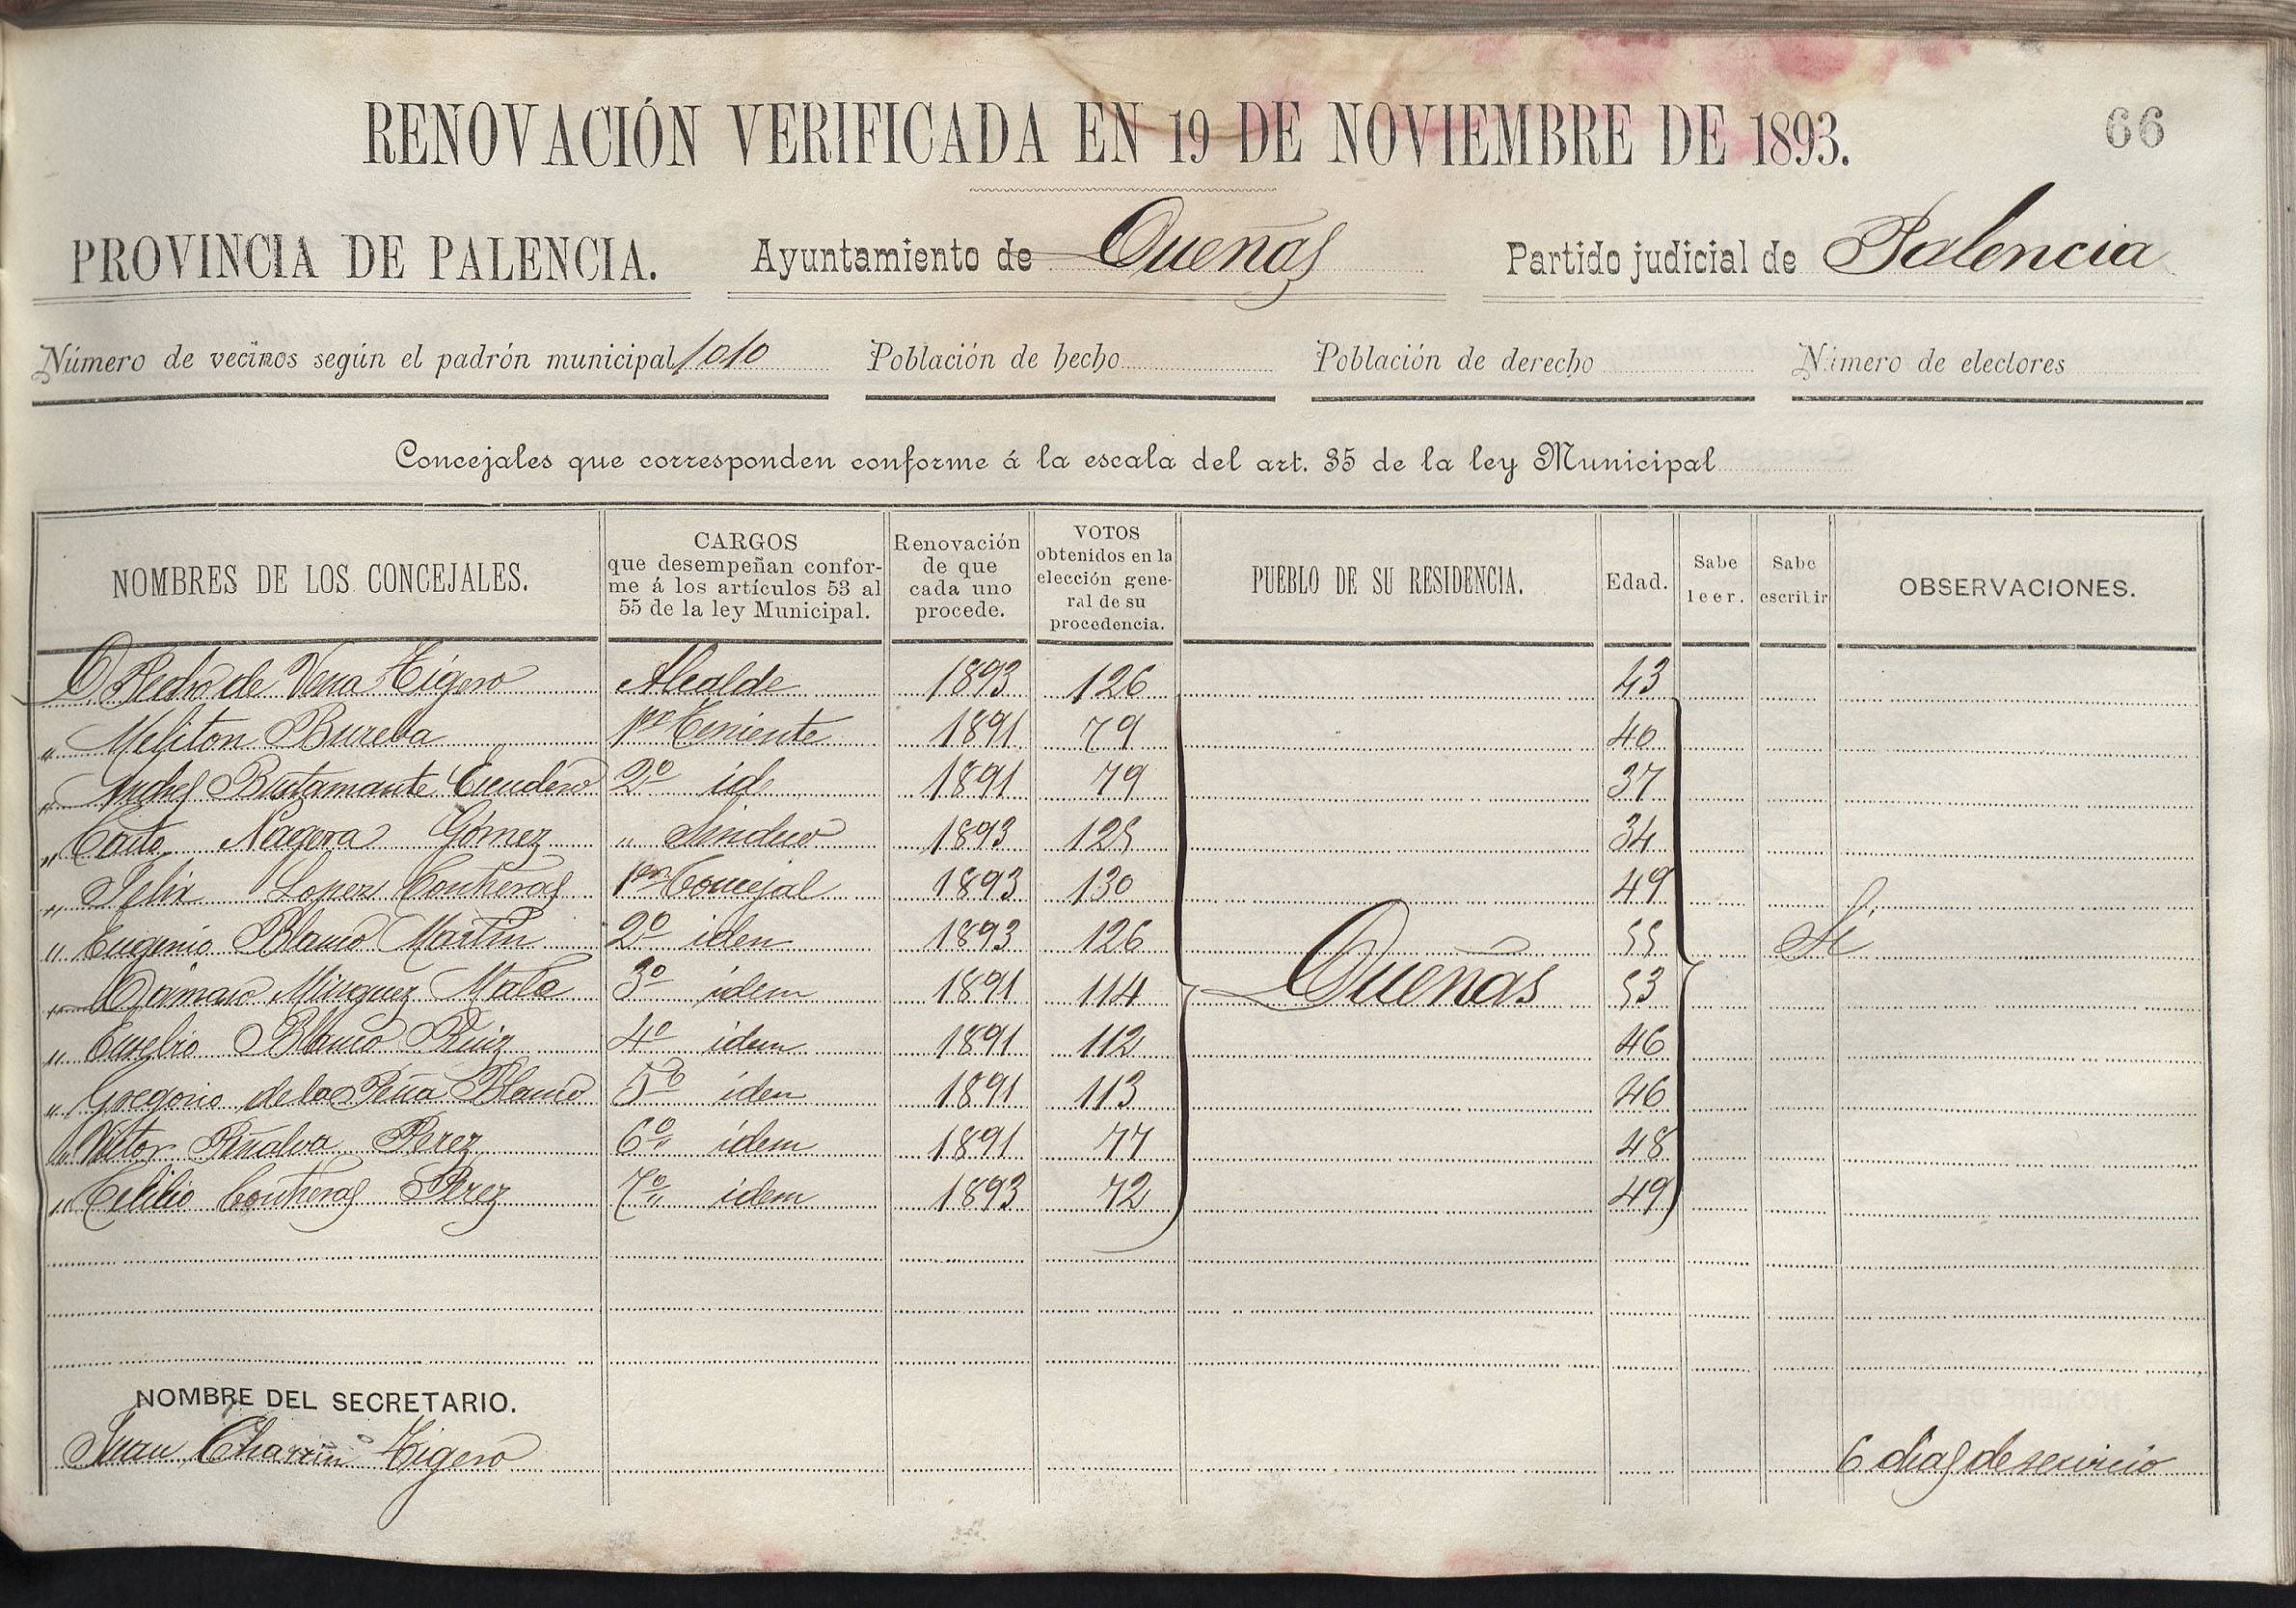 RENOVACIÓN VERIFICADA EN 19 DE NOVIEMBRE DE 1893. 66
PROVINCIA DE PALENCIA. Ayuntamiento de Dueñas Partido judicial de Palencia
Número de vecinos según el padrón municipal 1010 Población de hecho Población de derecho Número de electores
Concejales que corresponden conforme á la escala del art. 35 de la ley Municipal
NOMBRES DE LOS CONCEJALES. CARGOS que desempeñan confor-me á los artículos 53 al 55 de la ley Municipal. Renovación de que cada uno procede. VOTOS obtenidos en la elección gene-ral de su procedencia. PUEBLO DE SU RESIDENCIA. Edad. Sabe leer. Sabe escribir OBSERVACIONES.
D Pedro de Vena Tigero Alcalde 1893 126 43
" Meliton Bureba 1er Teniente 1891 79 40
" Andres Bustamante Escudero 2º id 1891 79 37
" Casto Nagera Gómez " Sindico 1893 125 34
" Felix Lopez Contreras 1er Concejal 1893 130 49
" Eugenio Blanco Martin 2º iden 1893 126 55 Si
" Damaso Minguez Mala 3º idem 1891 114 Dueñas 53
" Eusebio Blanco Ruiz 4º idem 1891 112 46
" Gregorio de la Peña Blanco 5º iden 1891 113 46
" Victor Peñalva Perez 6º idem 1891 77 48
" Cilicio Contreras Perez 7º idem 1893 72 49
NOMBRE DEL SECRETARIO.
Juan Charrin Tigero 6 dias de servicio